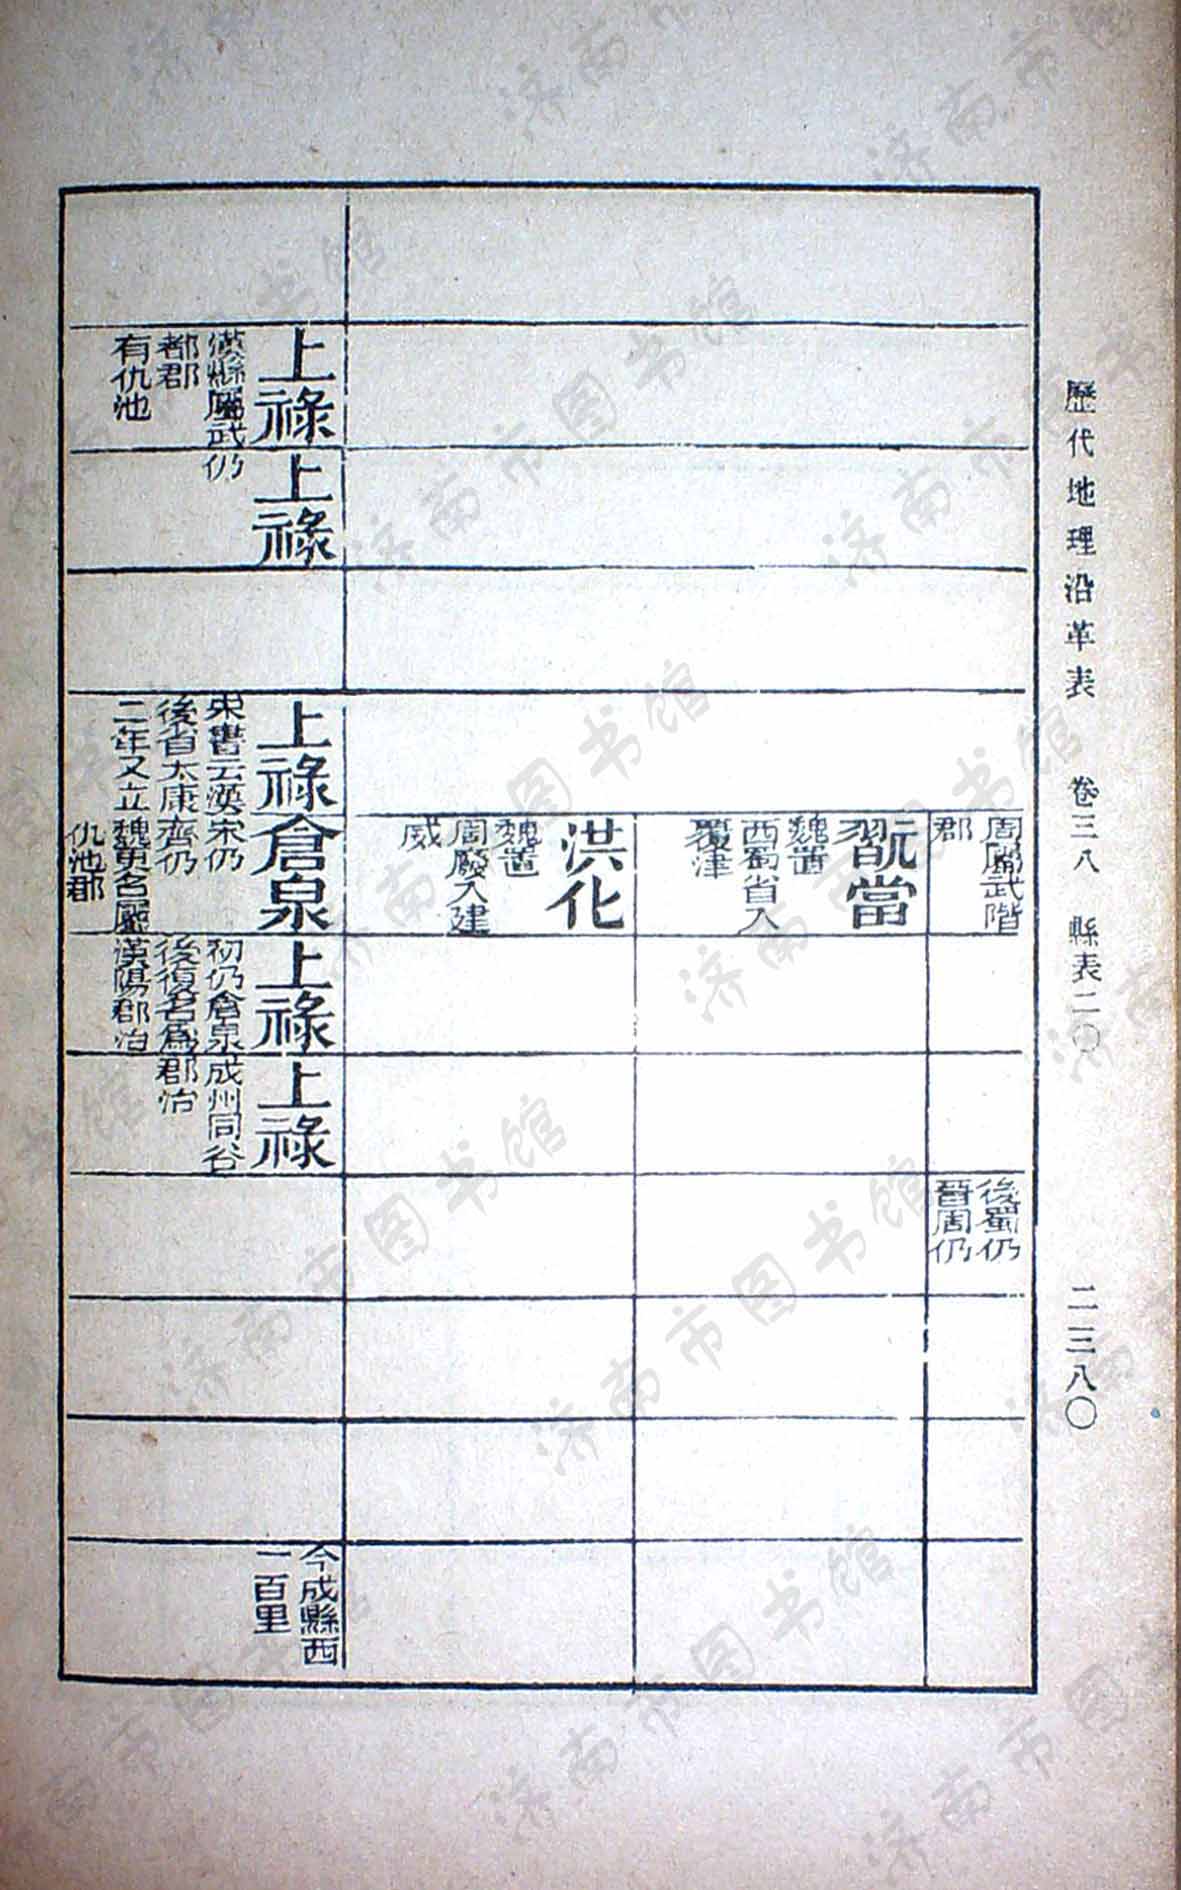 歷代地理沿革表 卷三八 縣表二〇 二三八〇
周屬武階
郡
後蜀仍
晉周仍
翫當
魏置
西蜀省入
覆津
洪化
魏置
周廢入建
威
上祿
漢縣屬武
都郡
有仇池
上祿
仍
上祿
宋書云漢
後省太康
二年又立
倉泉
宋仍
齊仍
魏更名屬
仇池郡
上祿
初仍倉泉
後復名爲
漢陽郡治
上祿
成州同谷
郡治
今成縣西
一百里
济南市图书馆